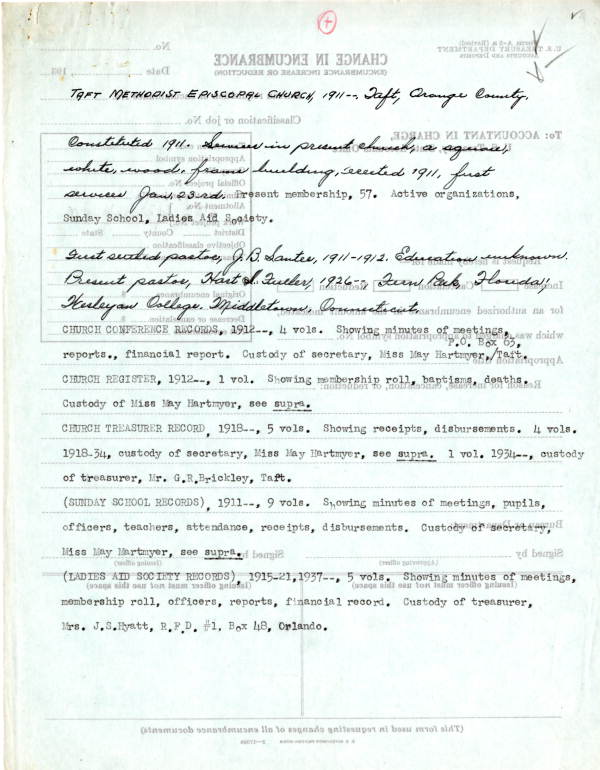 TAFT METHODIST EPISCOPAL CHURCH, 1911--. Taft, Orange County.
Constituted 1911. Services in present church, a square,
white, wood, frame building, erected 1911, first
services Jan. 23rd. Present membership, 57. Active organizations,
Sunday School, Ladies Aid Society.
First settled pastor, J. B. 1911-1912. Education unknown.
Present pastor, Hart S. Fuller, 1926--, Fern Park, Florida;
Wesleyan College, Middletown, Connecticut.
CHURCH CONFERENCE RECORDS, 1912--, 4 vols. Showing minutes of meetings,
P.O. Box 63,
reports., financial report. Custody of secretary, Miss May Hartmyer,/Taft.
CHURCH REGISTER, 1912--, 1 vol. Showing membership roll, baptisms, deaths.
Custody of Miss May Hartmyer, see supra.
CHURCH TREASURER RECORD, 1918--, 5 vols. Showing receipts, disbursements. 4 vols.
1918-34, custody of secretary, Miss May Hartmyer, see supra. 1 vol. 1934--, custody
of treasurer, Mr. G.R.Brickley, Taft.
(SUNDAY SCHOOL RECORDS), 1911--, 9 vols. Showing minutes of meetings, pupils,
officers, teachers, attendance, receipts, disbursements. Custody of secretary,
Miss May Hartmyer, see supra.
(LADIES AID SOCIETY RECORDS), 1915-21,1937--, 5 vols. Showing minutes of meetings,
membership roll, officers, reports, financial record. Custody of treasurer,
Mrs. J.S.Hyatt, R.F.D. #1, Box 48, Orlando.